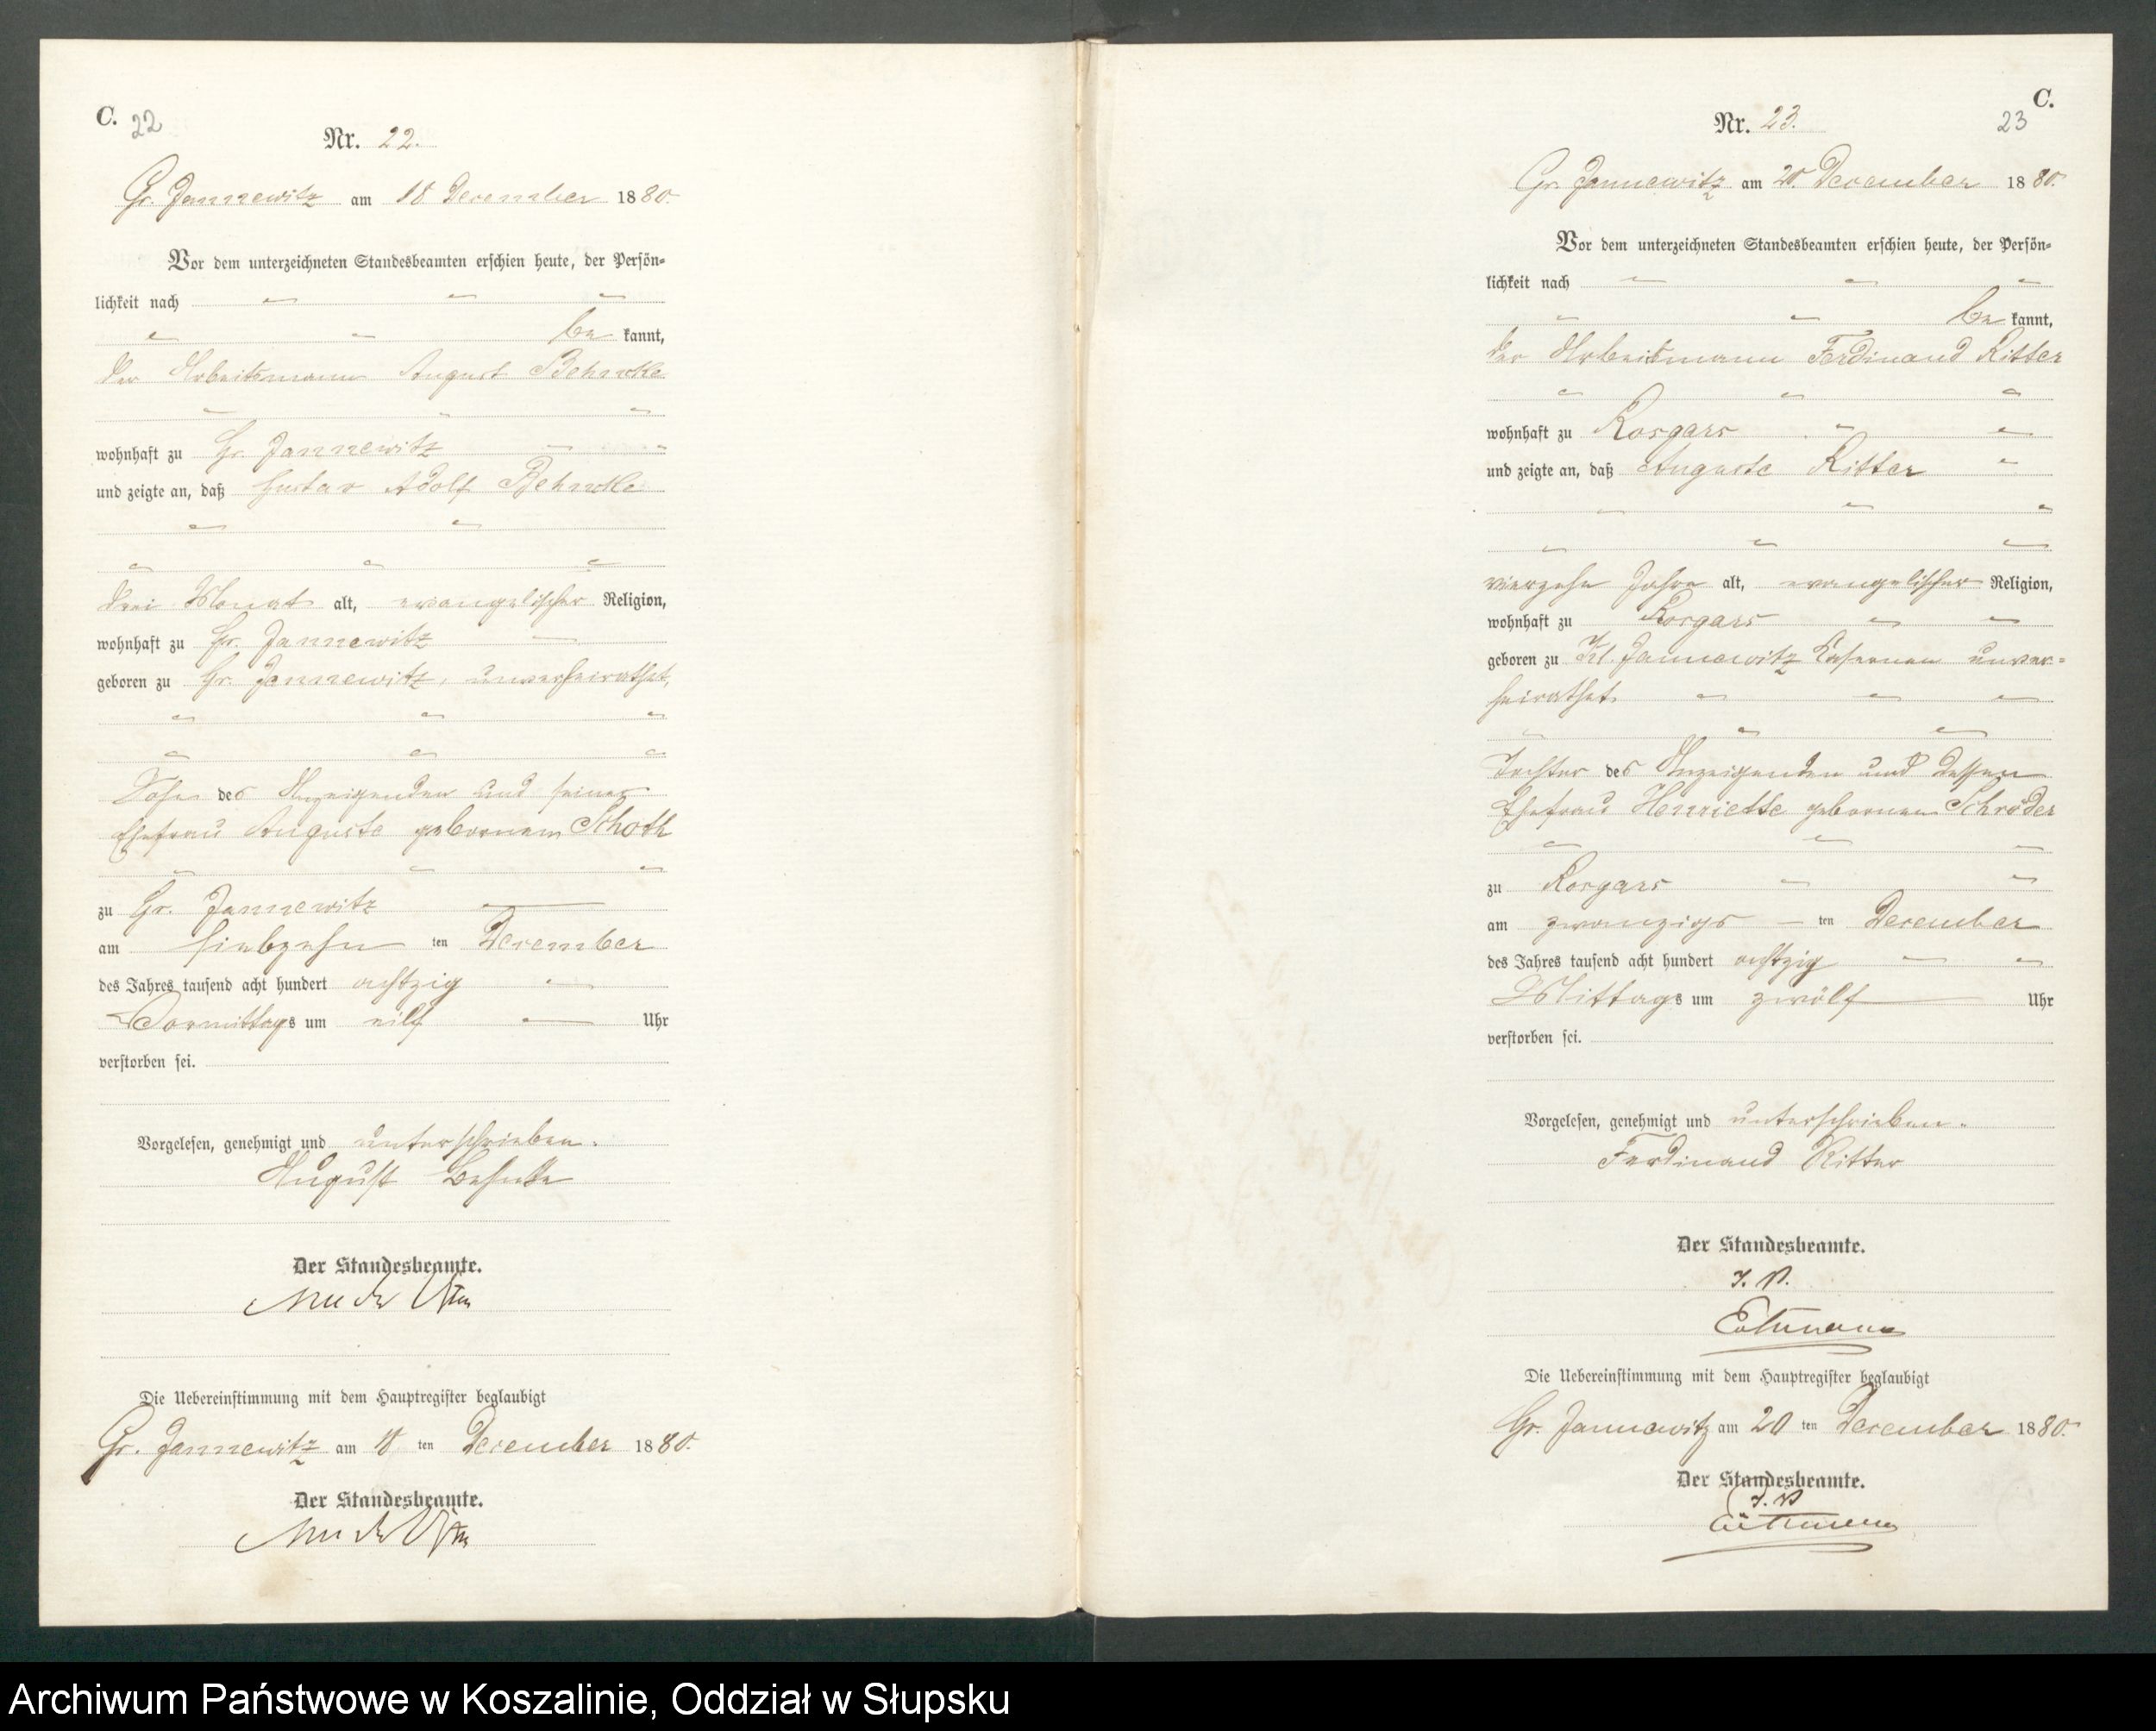 C. 22
Nr. 22.
Gr. Jannewitz am 18 December 1880.
Vor dem unterzeichneten Standesbeamten erschien heute, der Persön-
lichkeit nach
be kannt,
der Arbeitsmann August Behncke
wohnhaft zu Gr. Jannewitz
und zeigte an, daß Gustav Adolf Behncke
drei Monat alt, evangelischer Religion,
wohnhaft zu Gr. Jannewitz
geboren zu Gr. Jannewitz, unverheirathet,
Sohn des Anzeigenden und seiner
Ehefrau Auguste gebornen Schoth
zu Gr. Jannewitz
am siebzehn ten December
des Jahres tausend acht hundert achtzig
Vormittags um eilf Uhr
verstorben sei.
Vorgelesen, genehmigt und unterschrieben.
August Behnke
Der Standesbeamte.
Die Uebereinstimmung mit dem Hauptregister beglaubigt
Gr. Jannewitz am 18 ten December 1880.
Der Standesbeamte.
C.
23
Nr. 23.
Gr. Jannewitz am 20. December 1880.
Vor dem unterzeichneten Standesbeamten erschien heute, der Persön-
lichkeit nach
be kannt,
der Arbeitsmann Ferdinand Ritter
wohnhaft zu Rosgars
und zeigte an, daß Auguste Ritter
vierzehn Jahre alt, evangelischer Religion,
wohnhaft zu Rosgars
geboren zu Kl. Jannewitz Casernen unver-
heirathet
Tochter des Anzeigenden und dessen
Ehefrau Henriette gebornen Schröder
zu Rosgars
am zwanzigs ten December
des Jahres tausend acht hundert achtzig
Mittags um zwölf Uhr
verstorben sei.
Vorgelesen, genehmigt und unterschrieben.
Ferdinand Ritter
Der Standesbeamte.
I. V.
Die Uebereinstimmung mit dem Hauptregister beglaubigt
Gr. Jannewitz am 20 ten December 1880.
Der Standesbeamte.
I. V.
Archiwum Państwowe w Koszalinie, Oddział w Słupsku